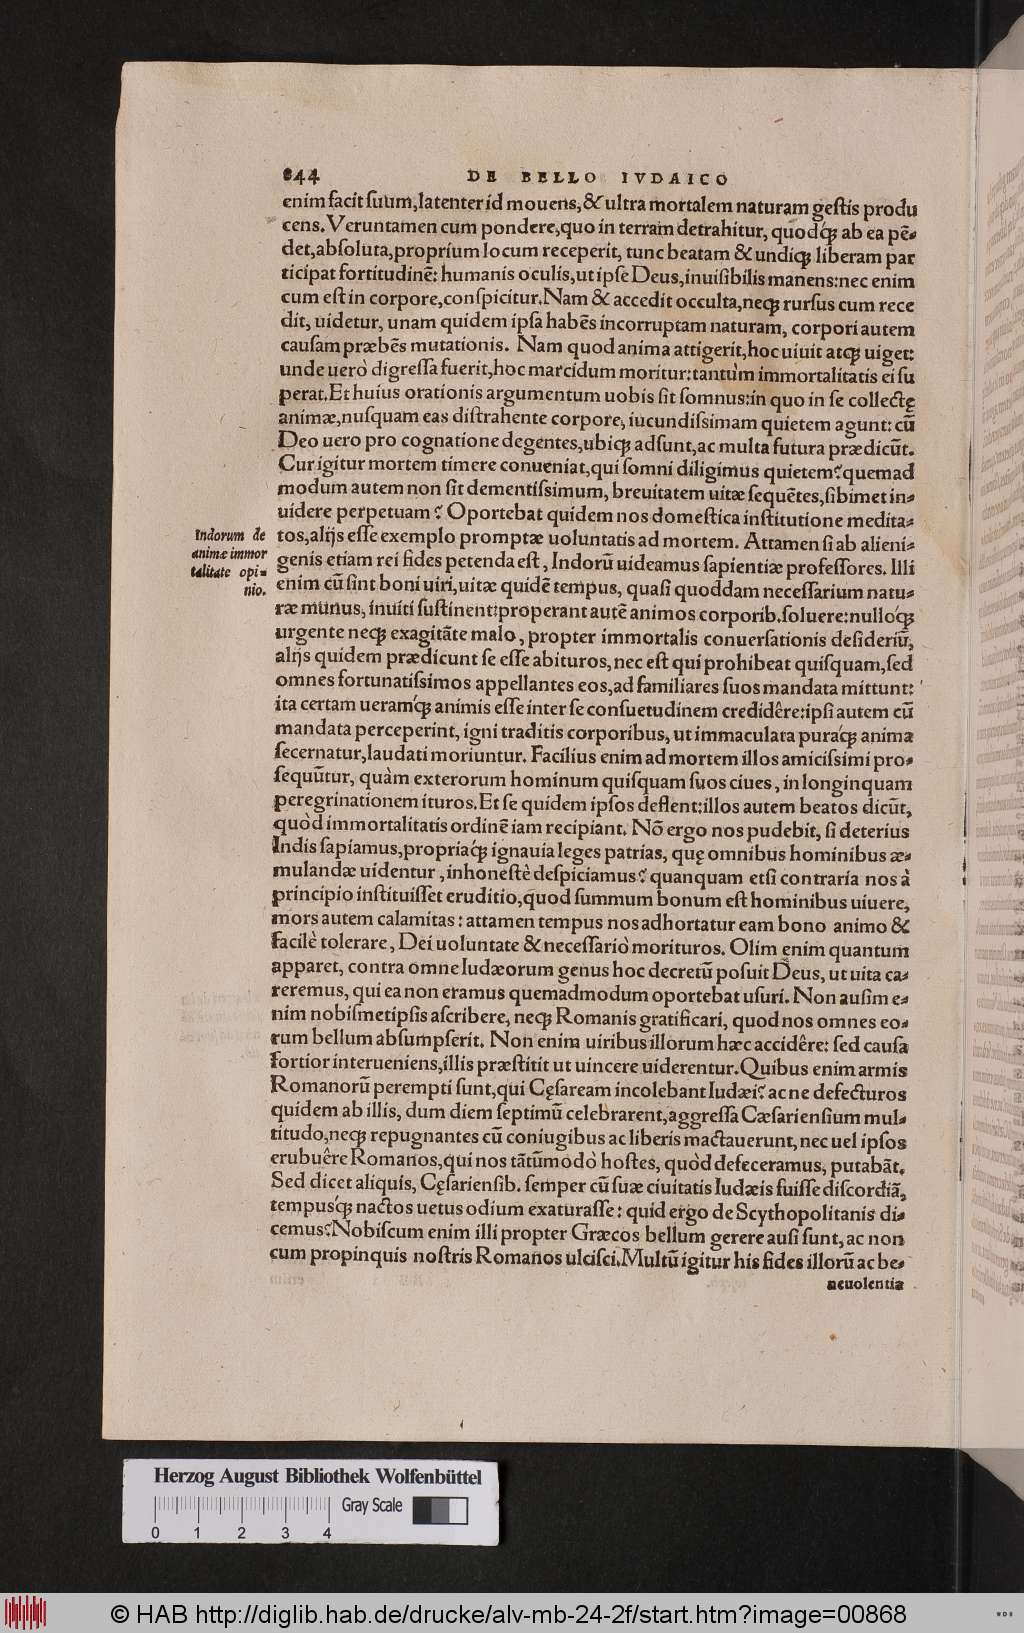 844 DE BELLO IVDAICO
enim facit ſuum, latenter id mouens, & ultra mortalem naturam geſtis produ
cens. Veruntamen cum pondere, quo in terram detrahitur, quodq́ꝫ ab ea pē-
det, abſoluta, proprium locum receperit, tunc beatam & undiqꝫ liberam par
ticipat fortitudinē: humanis oculis, ut ipſe Deus, inuiſibilis manens: nec enim
cum eſt in corpore, conſpicitur. Nam & accedit occulta, neqꝫ rurſus cum rece
dit, uidetur, unam quidem ipſa habēs incorruptam naturam, corpori autem
cauſam præbēs mutationis. Nam quod anima attigerit, hoc uiuit atqꝫ uiget:
unde uerò digreſſa fuerit, hoc marcidum moritur: tantùm immortalitatis ei ſu
perat. Et huius orationis argumentum uobis ſit ſomnus: in quo in ſe collectę
animæ, nuſquam eas diſtrahente corpore, iucundiſsimam quietem agunt: cū
Deo uero pro cognatione degentes, ubiqꝫ adſunt, ac multa futura prædicūt.
Cur igitur mortem timere conueniat, qui ſomni diligimus quietem? quemad
modum autem non ſit dementiſsimum, breuitatem uitæ ſequētes, ſibimet in-
uidere perpetuam? Oportebat quidem nos domeſtica inſtitutione medita-
tos, alijs eſſe exemplo promptæ uoluntatis ad mortem. Attamen ſi ab alieni-
genis etiam rei fides petenda eſt, Indorū uideamus ſapientiæ profeſſores. Illi
enim cū ſint boni uiri, uitæ quidē tempus, quaſi quoddam neceſſarium natu-
ræ munus, inuiti ſuſtinent: properant autē animos corporib. ſoluere: nulloq́ꝫ
urgente neqꝫ exagitāte malo, propter immortalis conuerſationis deſideriū,
alijs quidem prædicunt ſe eſſe abituros, nec eſt qui prohibeat quiſquam, ſed
omnes fortunatiſsimos appellantes eos, ad familiares ſuos mandata mittunt:
ita certam ueramq́ꝫ animis eſſe inter ſe conſuetudinem credidêre: ipſi autem cū
mandata perceperint, igni traditis corporibus, ut immaculata puraq́ꝫ anima
ſecernatur, laudati moriuntur. Facilius enim ad mortem illos amiciſsimi pro-
ſequūtur, quàm exterorum hominum quiſquam ſuos ciues, in longinquam
peregrinationem ituros. Et ſe quidem ipſos deflent: illos autem beatos dicūt,
quòd immortalitatis ordinē iam recipiant. Nō ergo nos pudebit, ſi deterius
Indis ſapiamus, propriaq́ꝫ ignauia leges patrias, quę omnibus hominibus æ-
mulandæ uidentur, inhoneſtè deſpiciamus? quanquam etſi contraria nos à
principio inſtituiſſet eruditio, quod ſummum bonum eſt hominibus uiuere,
mors autem calamitas: attamen tempus nos adhortatur eam bono animo &
facilè tolerare, Dei uoluntate & neceſſariò morituros. Olim enim quantum
apparet, contra omne Iudæorum genus hoc decretū poſuit Deus, ut uita ca-
reremus, qui ea non eramus quemadmodum oportebat uſuri. Non auſim e-
nim nobiſmetipſis aſcribere, neqꝫ Romanis gratificari, quod nos omnes eo-
rum bellum abſumpſerit. Non enim uiribus illorum hæc accidêre: ſed cauſa
fortior interueniens, illis præſtitit ut uincere uiderentur. Quibus enim armis
Romanorū perempti ſunt, qui Cęſaream incolebant Iudæi? ac ne defecturos
quidem ab illis, dum diem ſeptimū celebrarent, aggreſſa Cæſarienſium mul-
titudo, neqꝫ repugnantes cū coniugibus ac liberis mactauerunt, nec uel ipſos
erubuêre Romanos, qui nos tātūmodò hoſtes, quòd defeceramus, putabāt.
Sed dicet aliquis, Cęſarienſib. ſemper cū ſuæ ciuitatis Iudæis fuiſſe diſcordiā,
tempusq́ꝫ nactos uetus odium exaturaſſe: quid ergo de Scythopolitanis di-
cemus? Nobiſcum enim illi propter Græcos bellum gerere auſi ſunt, ac non
cum propinquis noſtris Romanos ulciſci. Multū igitur his fides illorū ac be-
neuolentia
Indorum de
animæ immor
talitate opi-
nio.
Herzog August Bibliothek Wolfenbüttel
Gray Scale
0 1 2 3 4
© HAB http://diglib.hab.de/drucke/alv-mb-24-2f/start.htm?image=00868